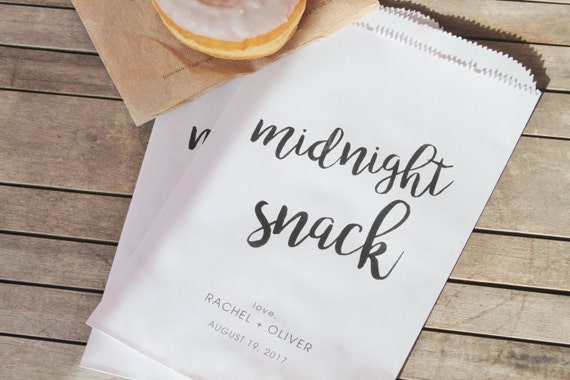 midnight
snack
love,
RACHEL + OLIVER
AUGUST 19, 2017